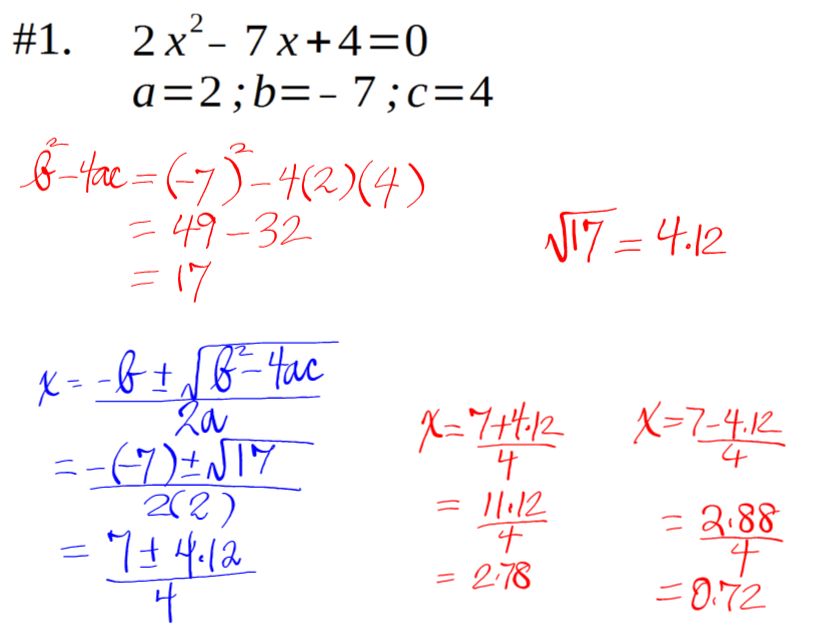 #1. 2x² – 7x+4=0
a=2;b=– 7;c=4
b²-4ac = (-7)² - 4(2)(4)
= 49 - 32
= 17
√17 = 4.12
x = (-b ± √(b²-4ac))/2a
= (-(-7) ± √17)/2(2)
= (7 ± 4.12)/4
x = (7+4.12)/4
= 11.12/4
= 2.78
x = (7-4.12)/4
= 2.88/4
= 0.72